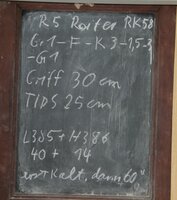 R5 Roiter RK50
Gr1-F-K3-1,5-3
-G1
Griff 30cm
TIDS 25cm
L385+H386
40 + 14
erst Kalt, dann 60°